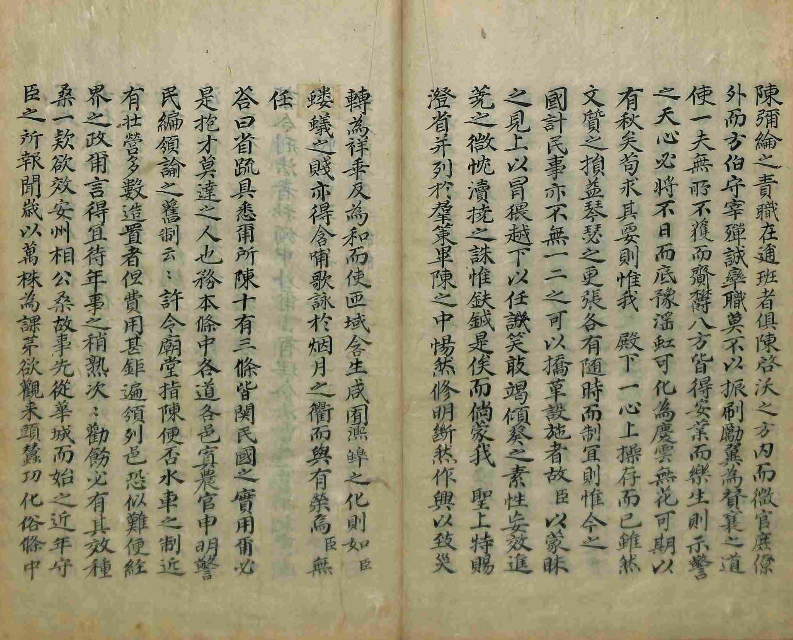 陳彌綸之責職在邇班者俱陳啓沃之方內而微官庶僚
外而方伯守宰殫誠擧職莫不以振刷勵翼爲賛襄之道
使一夫無所不獲而賢欝八方皆得安業而樂生則示警
之天心必將不日而底豫滛虹可化為慶雲無花可期以
有秋矣苟求其要則惟我 殿下一心上操存而已雖然
文質之損益琴瑟之更張各有隨時而制宜則惟今之
國計民事亦不無一二之可以撟革設施者故臣以蒙昧
之見上以冒猥越下以任譏笑敢竭傾葵之素性妄效進
蕘之微忱瀆撓之誅惟鈇鉞是俟而倘蒙我 聖上特賜
澄省幷列於羣策畢陳之中惕然修明斷然作興以致災
轉為祥乖反為和而使匝域含生咸囿凞皥之化則如臣
蝼蟻之賤亦得含哺歌詠於烟月之衢而與有榮焉臣無
任
答曰省䟽具悉爾所陳十有三條皆関民國之實用爾必
是抱才莫達之人也務本條中各道各邑寘農官申明警
民編領論之舊制云云許令廟堂指陳便否水車之制近
有壯營多數造置者但費用甚鉅遍領列邑恐似難便經
界之政爾言得宜待年事之稍熟次次勸飭必有其效種
桑一款欲效安州相公桑故事先從華城而始之近年守
臣之所報聞歲以萬株為課第欲觀来頭蠶功化俗條中